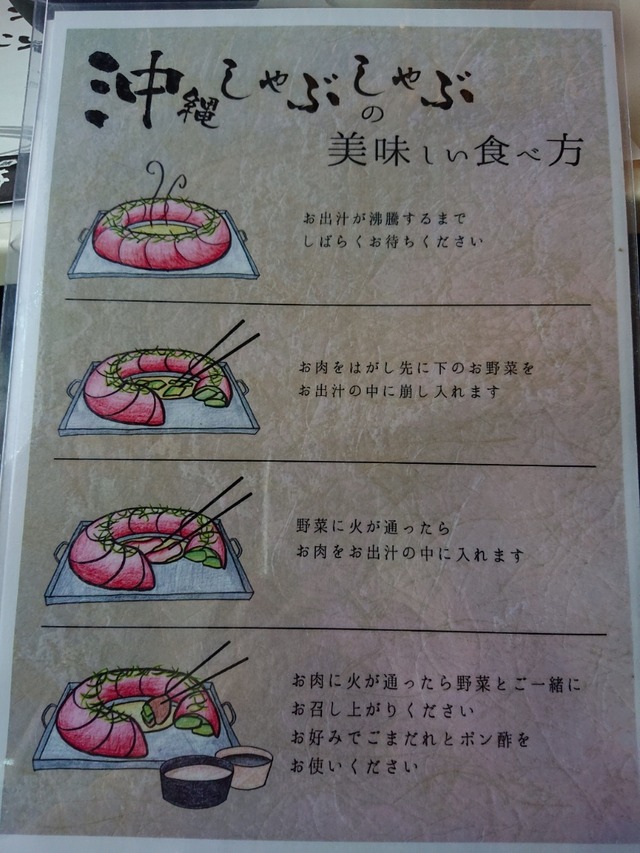 沖縄しゃぶしゃぶの
美味しい食べ方
お出汁が沸騰するまで
しばらくお待ちください
お肉をはがし先に下のお野菜を
お出汁の中に崩し入れます
野菜に火が通ったら
お肉をお出汁の中に入れます
お肉に火が通ったら野菜とご一緒に
お召し上がりください
お好みでごまだれとポン酢を
お使いください